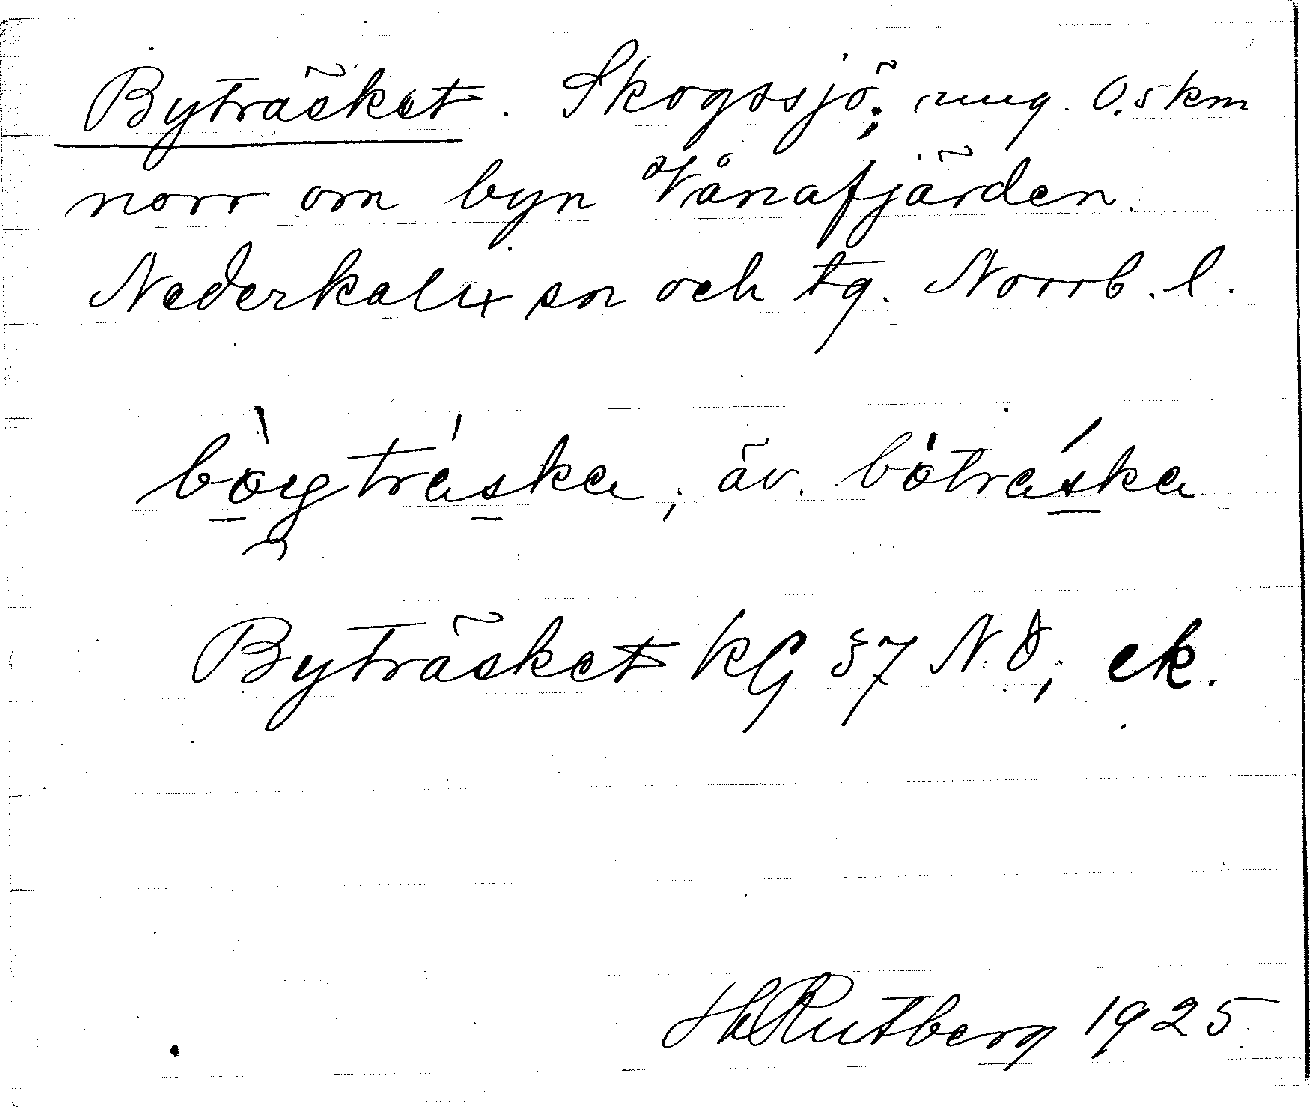 Byträsket. Skogssjö; ung. 0.5 km
norr om byn Vånafjärden.
Nederkalix sn och tg. Norrb. l.
bögträska, äv. böträska
Byträsket KG 37 N.O; ek.
H Rutberg 1925